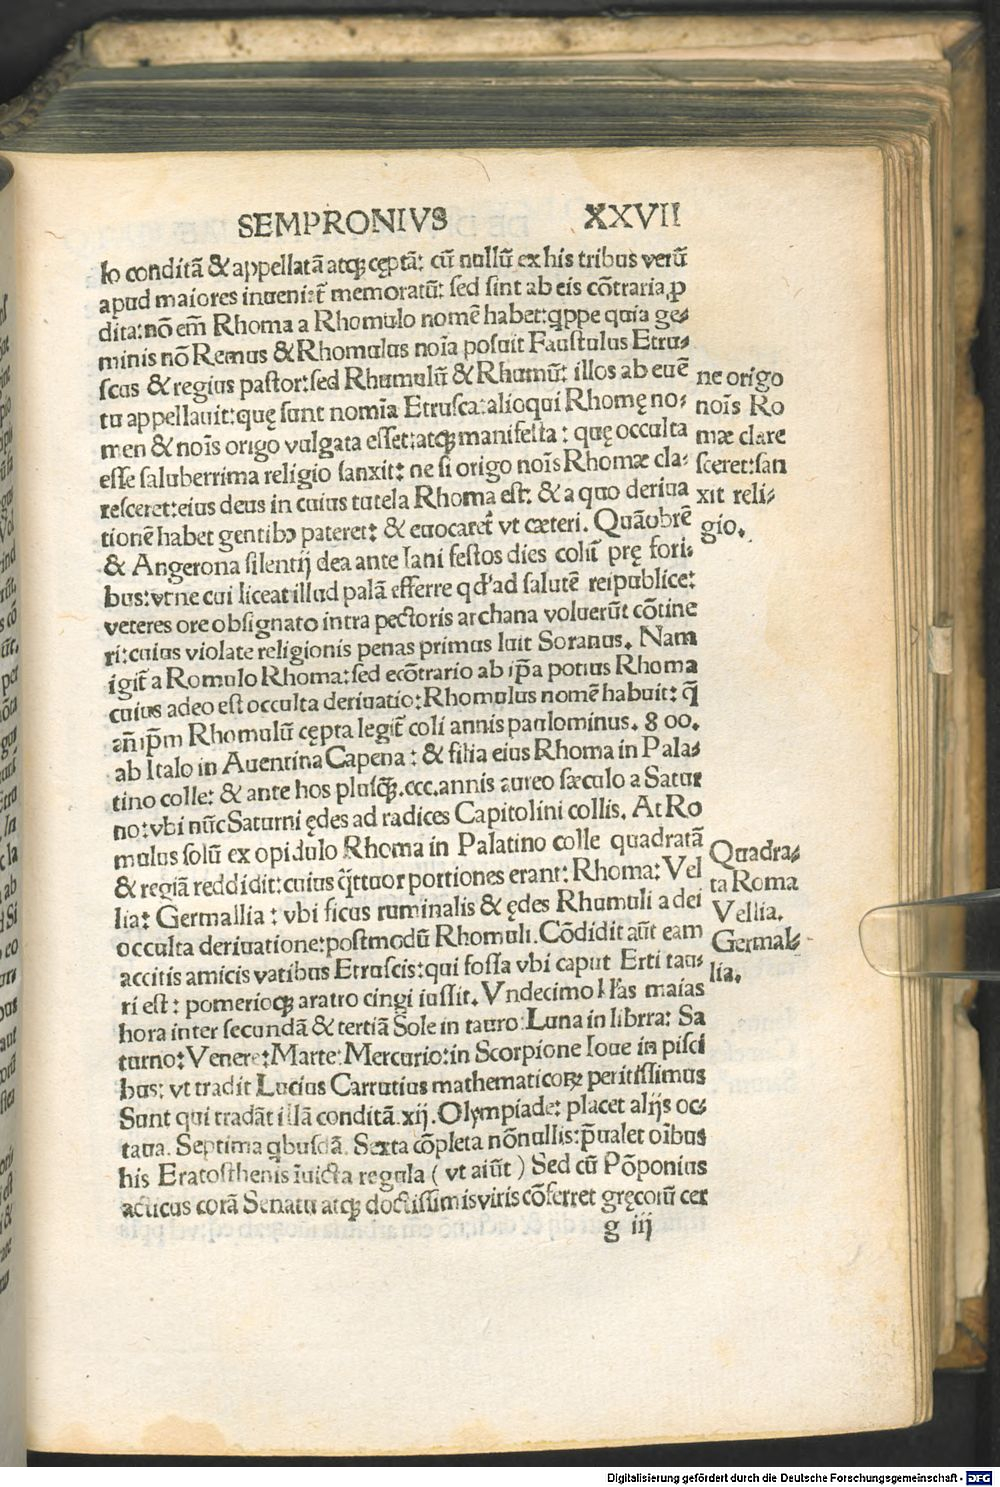 SEMPRONIVS XXVII
lo conditã & appellatã atqꝫ cęptã: cũ nullũ ex his tribus verũ
apud maiores inueniat̃ memoratũ: sed sint ab eis cõtraria ꝓ
dita: nõ em̃ Rhoma a Rhomulo nomẽ habet: qppe quia ge⸗
minis nõ Remus & Rhomulus noĩa posuit Faustulus Etru⸗
scus & regius pastor: sed Rhumulũ & Rhumũ: illos ab euẽ
tu appellauit: quę sunt nomĩa Etrusca: alioqui Rhomę no⸗
men & noĩs origo vulgata esset: atqꝫ manifesta: quę occulta
esse saluberrima religio sanxit: ne si origo noĩs Rhomæ cla⸗
resceret: eius deus in cuius tutela Rhoma est: & a quo deriua
tionẽ habet gentibꝰ pateret: & euocaret̃ vt cæteri. Quãobrẽ
& Angerona silentij dea ante Iani festos dies colit̃ prę fori⸗
bus: vt ne cui liceat illud palã efferre qđ ad salutẽ reipublice:
veteres ore obsignato intra pectoris archana voluerũt cõtine
ri: cuius violate religionis penas primus luit Soranus. Nam
igit̃ a Romulo Rhoma: sed ecõtrario ab ip̃a potius Rhoma
cuius adeo est occulta deriuatio: Rhomulus nomẽ habuit: q̃
añ ip̃m Rhomulũ cępta legit̃ coli annis paulominus. 800.
ab Italo in Auentina Capena: & filia eius Rhoma in Pala⸗
tino colle: & ante hos plusqꝫ. ccc. annis aureo sæculo a Satur
no: vbi nũc Saturni ędes ad radices Capitolini collis. At Ro
mulus solũ ex opidulo Rhoma in Palatino colle quadratã
& regiã reddidit: cuius q̃ttuor portiones erant: Rhoma: Vel
lia: Germallia: vbi ficus ruminalis & ędes Rhumuli a dei
occulta deriuatione: postmodũ Rhomuli. Cõdidit aũt eam
accitis amicis vatibus Etruscis: qui fossa vbi caput Erti tau⸗
ri est: pomerioqꝫ aratro cingi iussit. Vndecimo kl'as maias
hora inter secundã & tertiã Sole in tauro: Luna in librra: Sa
turno: Venere: Marte: Mercurio: in Scorpione Ioue in pisci
bus: vt tradit Lucius Carrutius mathematicoꝝ peritissimus
Sunt qui tradãt illã conditã. xij. Olympiade: placet alijs oc⸗
taua. Septima qbusdã. Sexta cõpleta nõnullis: p̃ualet oĩbus
his Eratosthenis ĩuicta regula ( vt aiũt ) Sed cũ Põponius
acticus corã Senatu atqꝫ doctissimis viris cõferret gręcorũ cer
g iij
ne origo
noĩs Ro
mæ clare
sceret: san
xit reli⸗
gio.
Quadra⸗
ta Roma
Vellia.
Germal⸗
lia.
Digitalisierung gefördert durch die Deutsche Forschungsgemeinschaft - DFG